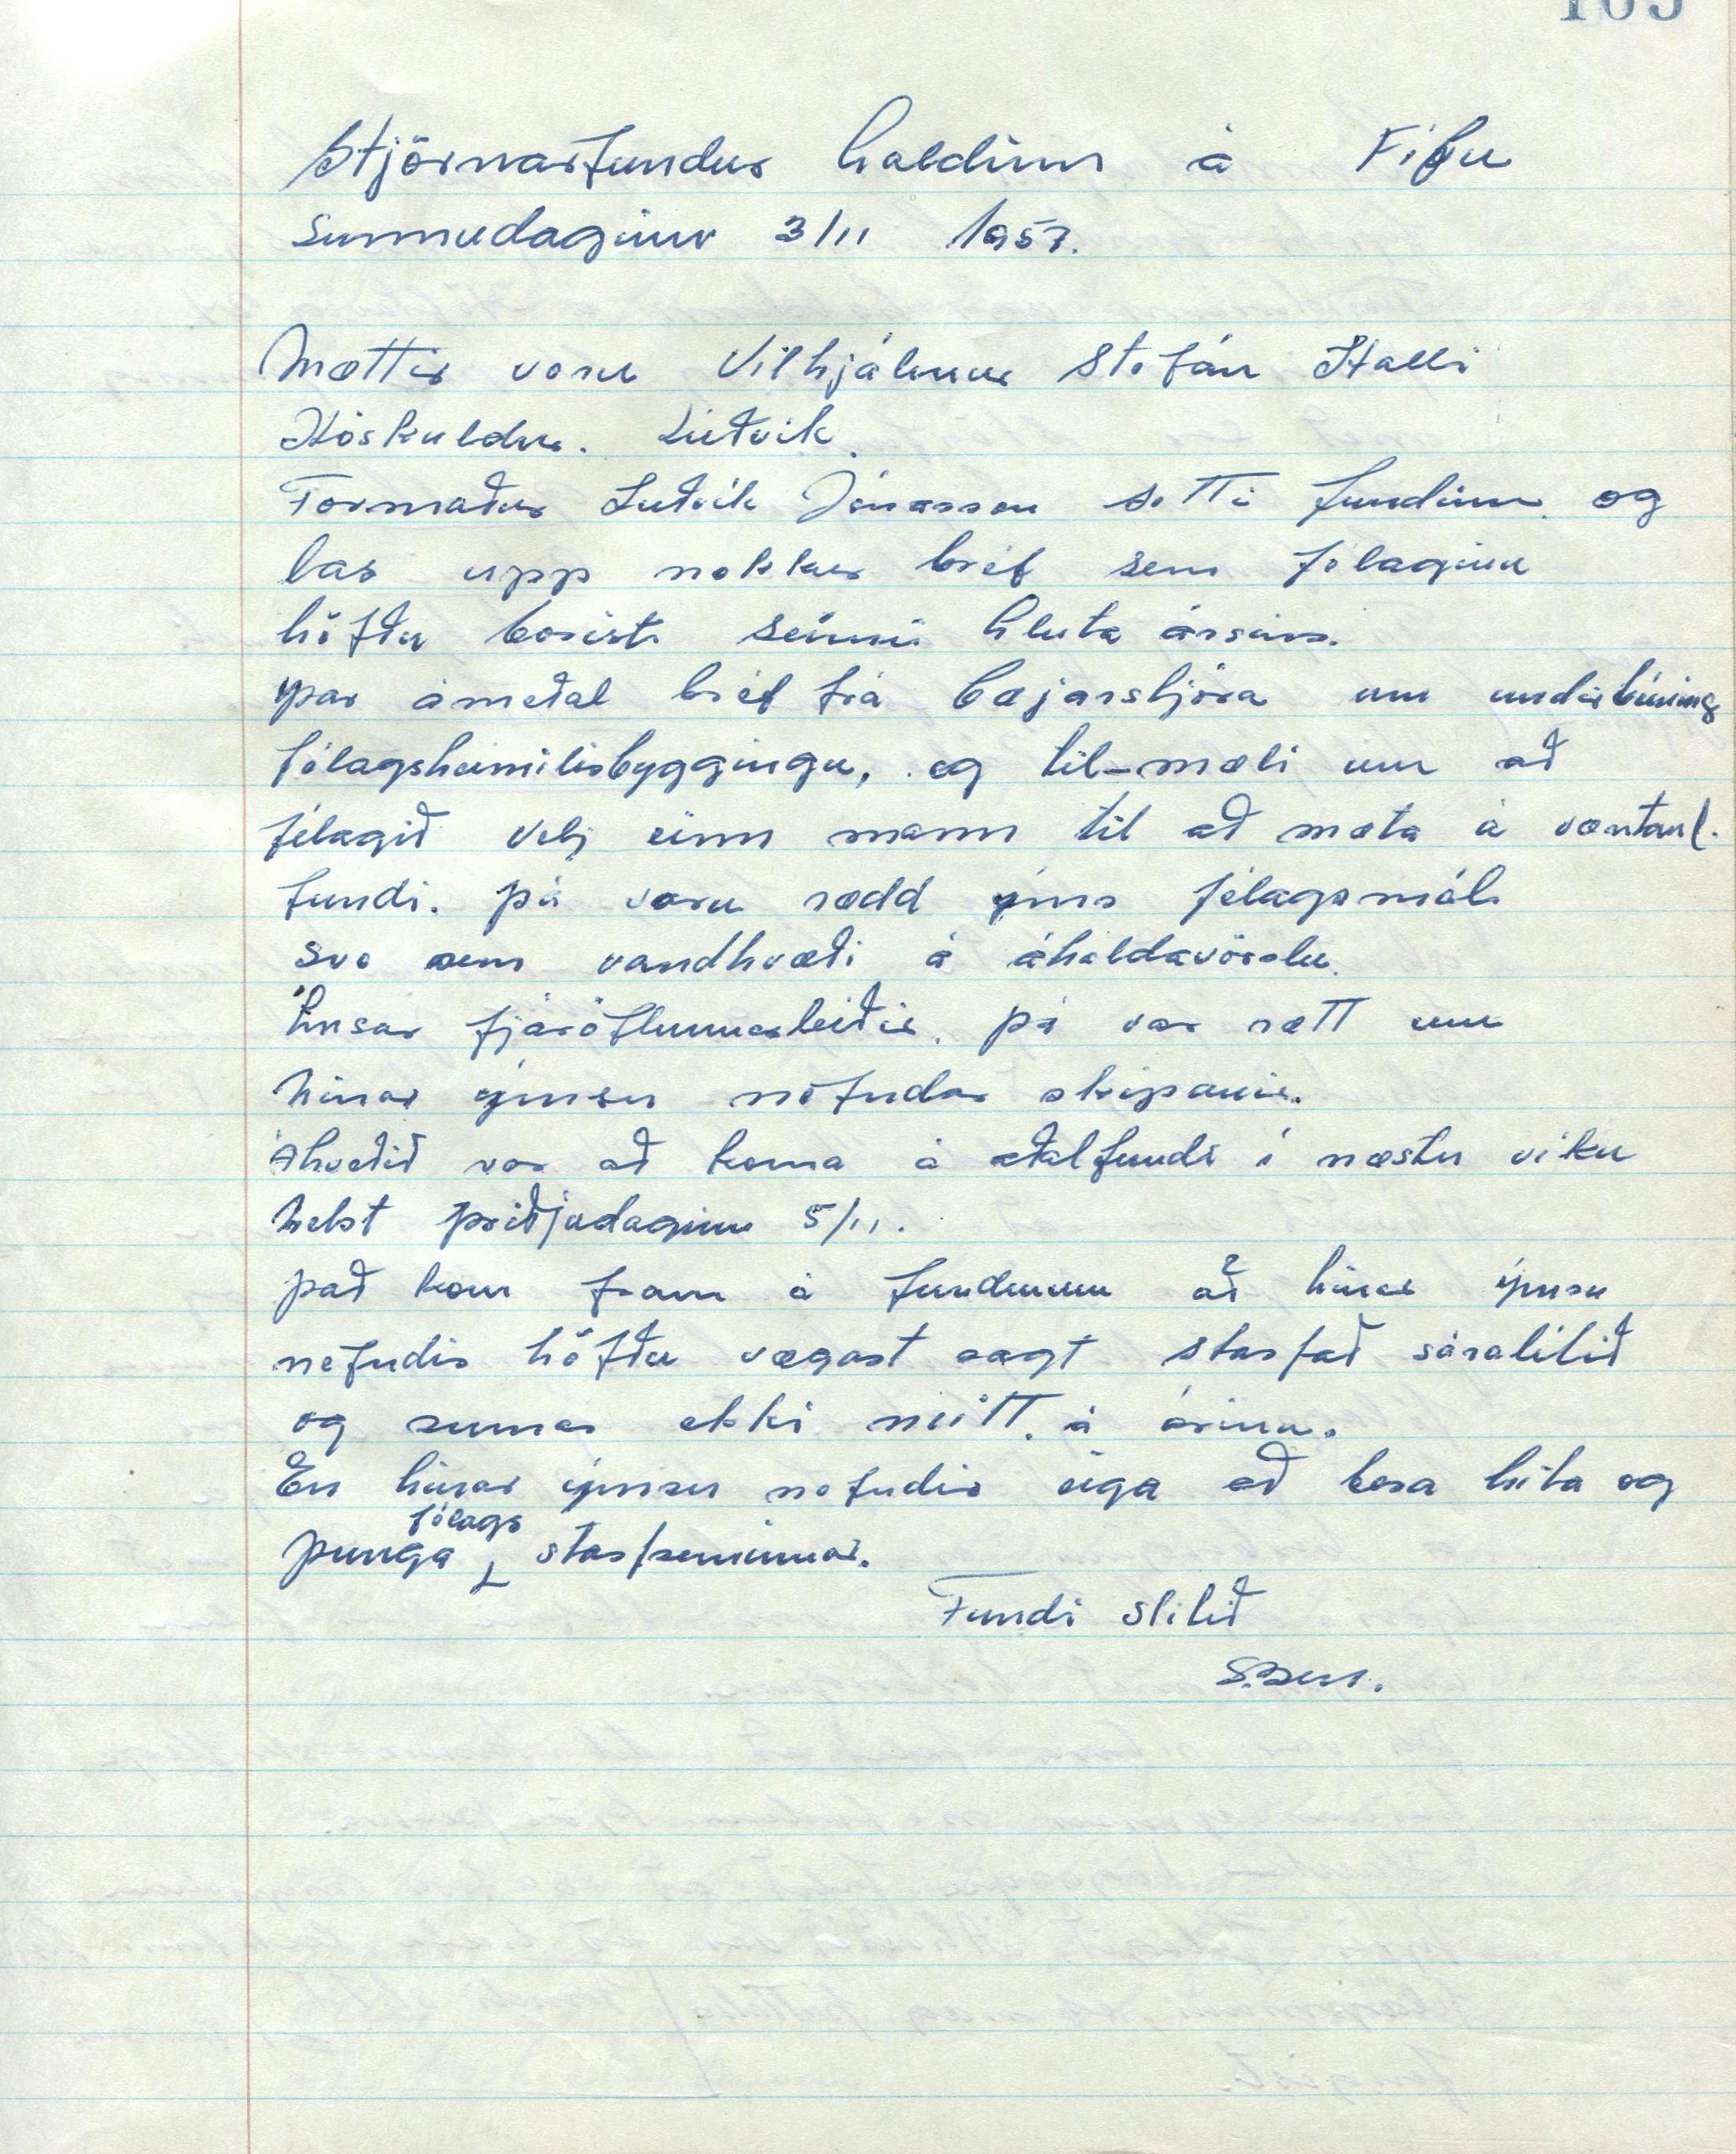 Stjórnarfundur haldinn á Fifu
sunnudaginn 3/11 1957.
Mættir voru Vilhjálmur Stefán Halli
Höskuldur. Lúðvik
Formaður Luðvik Jónasson setti fundinn og
las upp nokkur bréf sem félaginu
höfðu borist seinni hluta ársins.
þar ámeðal bréf frá bæjarstjóra um undirbúning
félagsheimilisbyggingu, og til-mæli um að
félagið velj einn mann til að mæta á væntanl.
fundi. þá voru rædd ýms félagsmál
svo sem vandhvæði á áhaldavörslu.
Ýmsar fjáröflunnarleiðir. þá var rætt um
hinar ýmsu nefndar skipanir.
Ákveðið var að koma á aðalfundi í næstu viku
helst þriðjudaginn 5/11.
það kom fram á fundinum að hinar ýmsu
nefndir höfðu vægast sagt starfað sáralitið
og sumar ekki neitt á árinu.
En hinar ýmsu nefndir eiga að bera hita og
þunga félags starfseminnar.
Fundi slitið